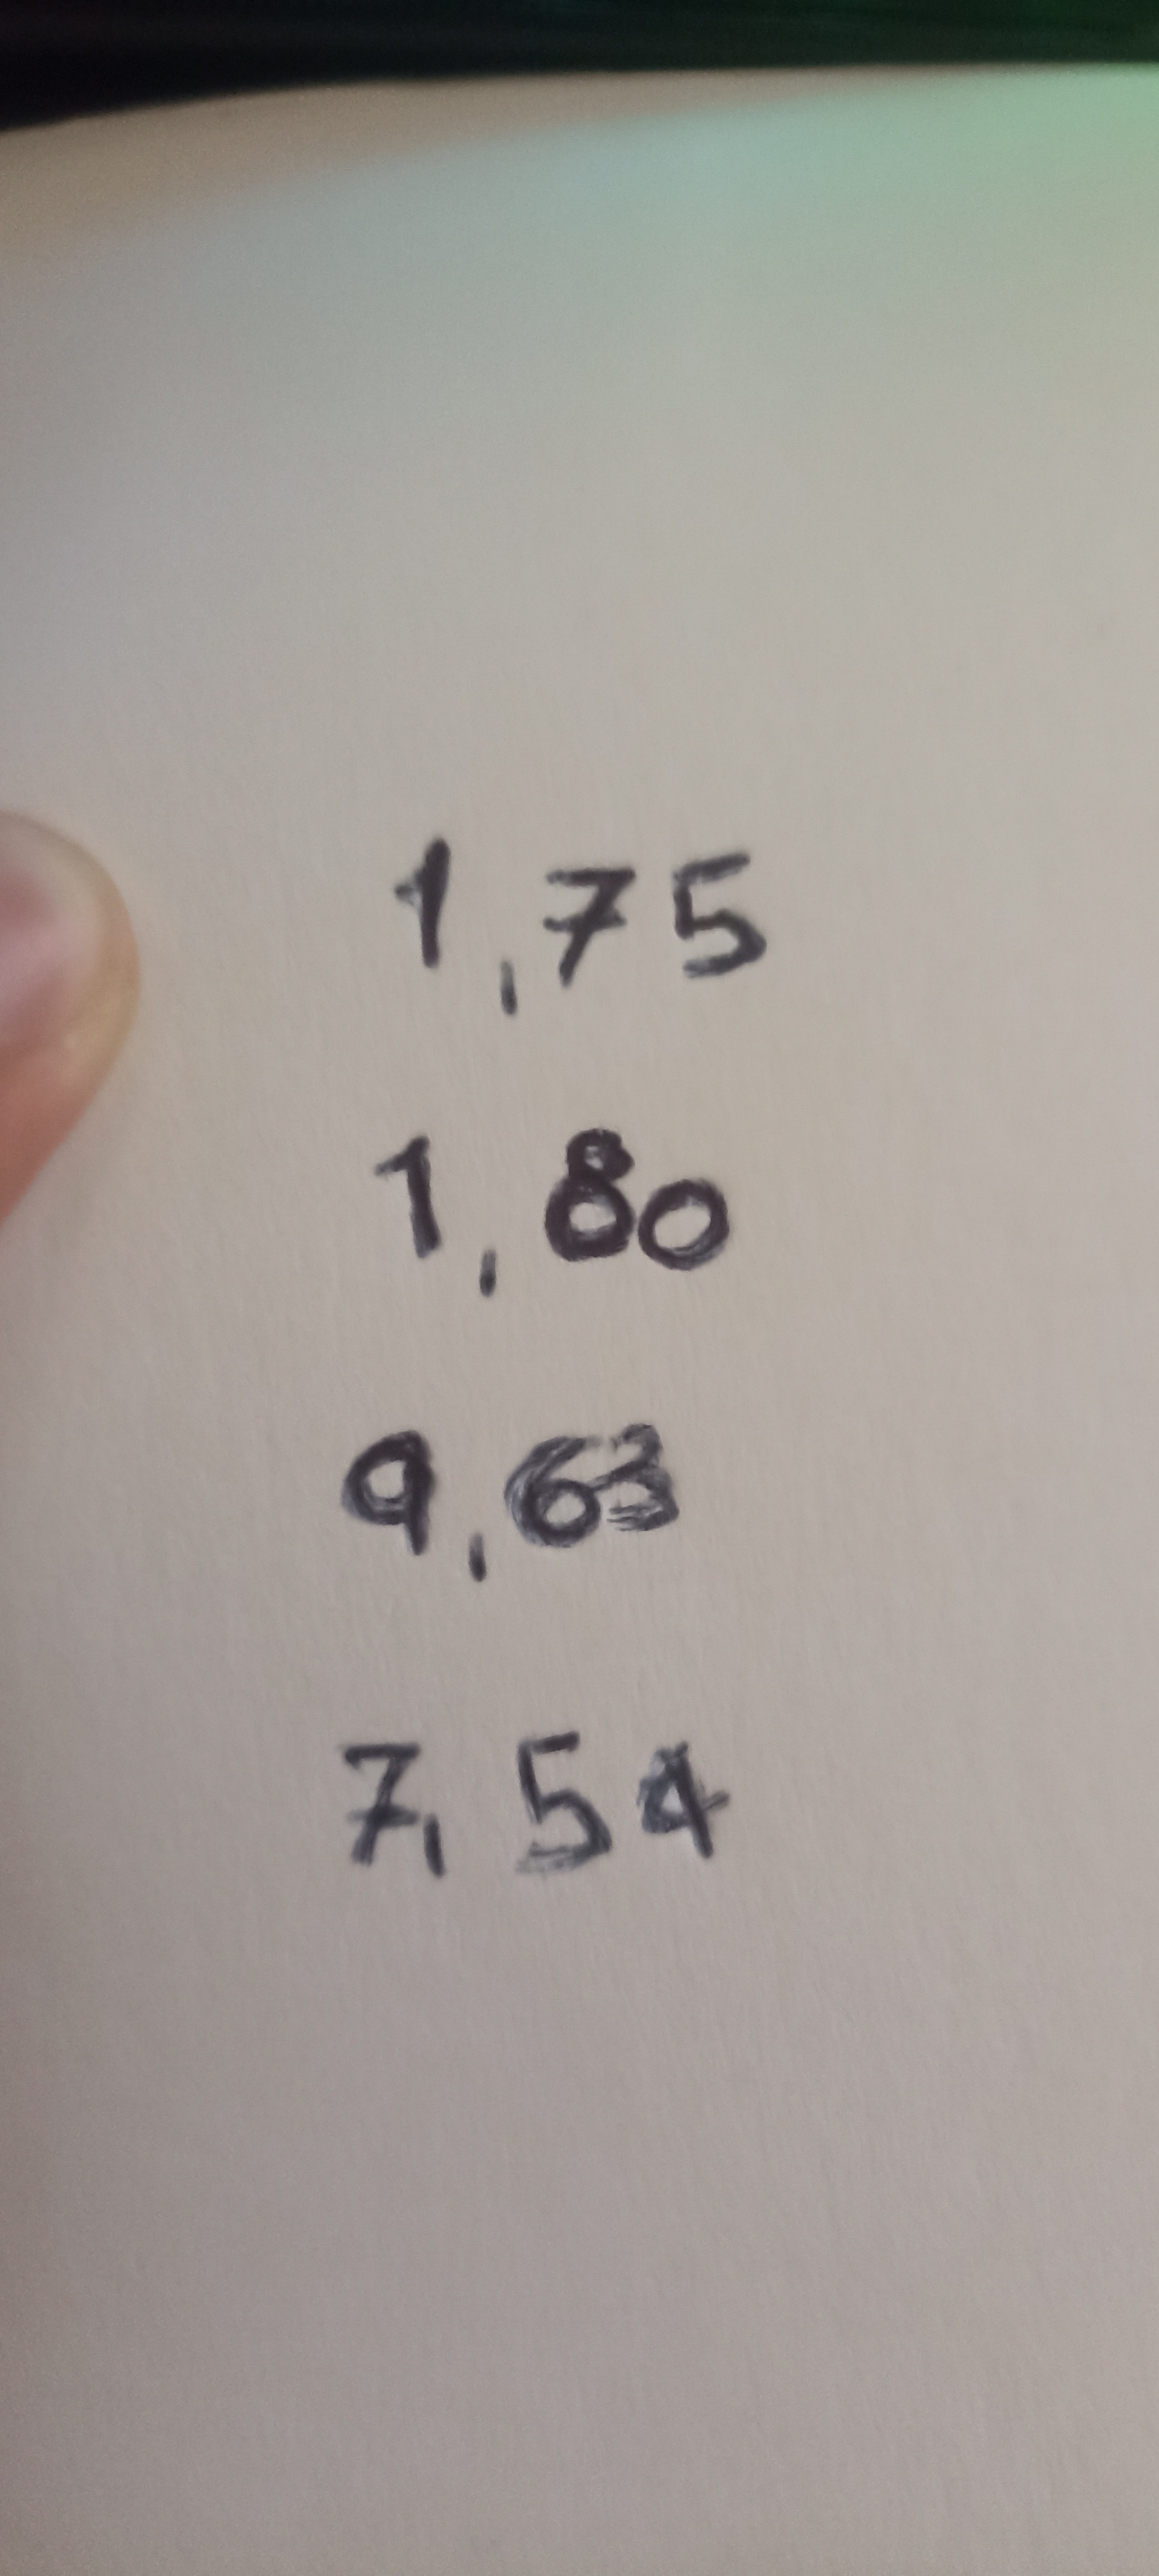 1,75
1,80
9,63
7,54